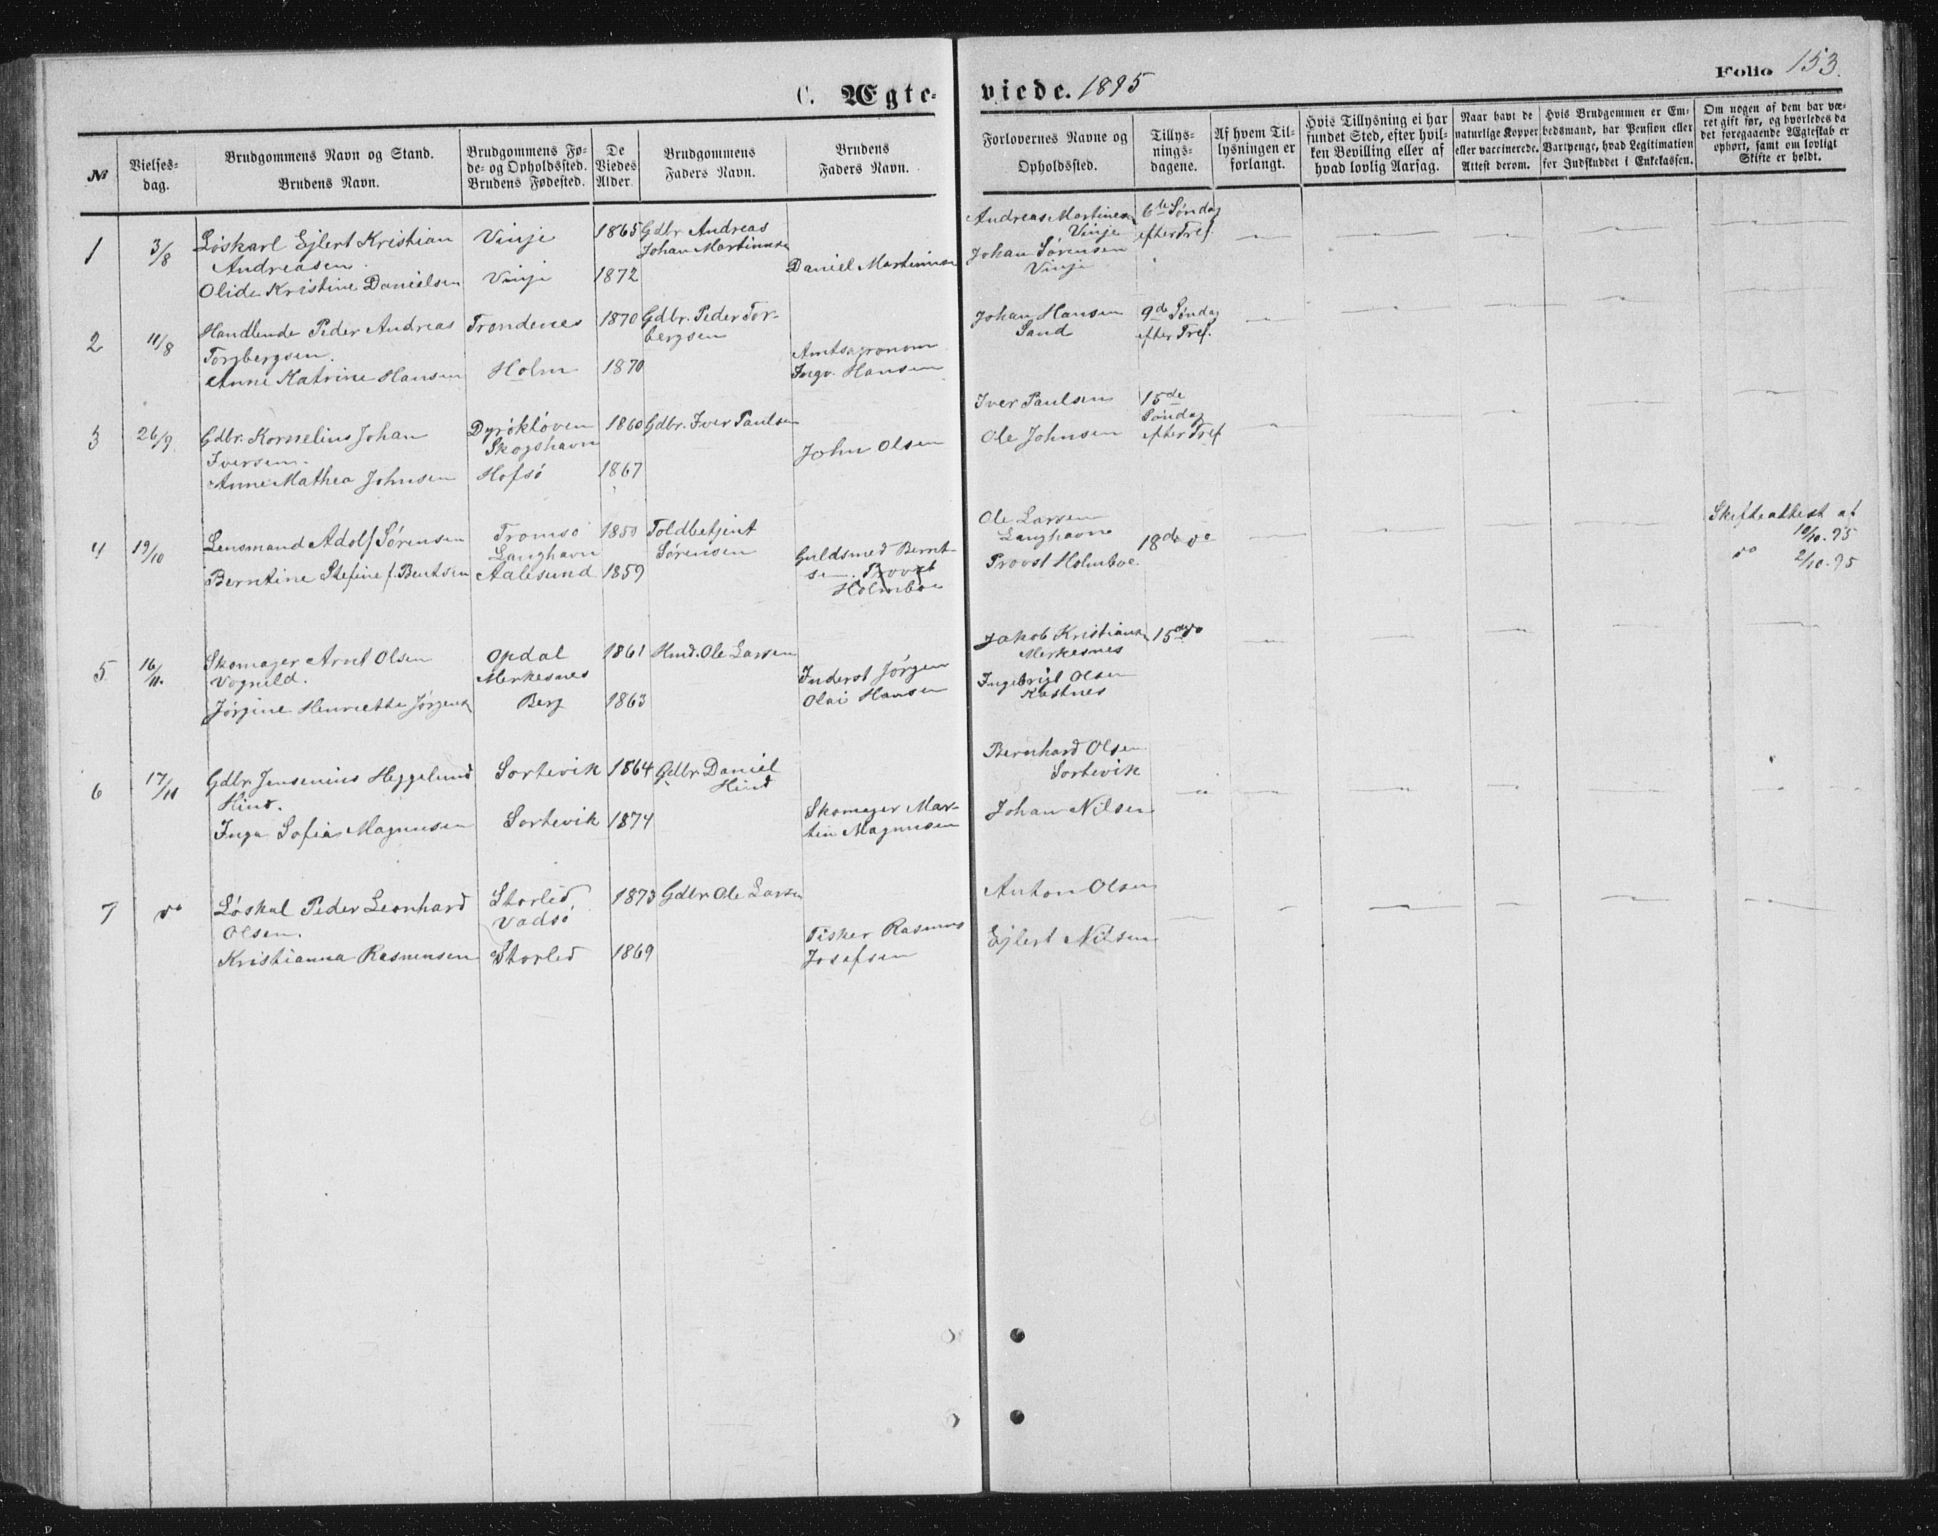 C. Ægteviede. 1895
Folio 153.
№
Vielsesdag.
Brudgommens Navn og Stand.
Brudens Navn.
Brudgommens Føde- og Opholdssted.
Brudens Fødested.
De Viedes Alder.
Brudgommens Faders Navn.
Brudens Faders Navn.
Forlovernes Navne og Opholdssted.
Tillysningsdagene.
Af hvem Tillysningen er forlangt.
Hvis Tillysning ei har fundet Sted, efter hvilken Bevilling eller af hvad lovlig Aarsag.
Naar havt de naturlige Kopper eller vaccinerede. Attest derom.
Hvis Brudgommen er Embedsmand, har Pension eller Vartpenge, hvad Legitimation for Indskuddet i Enkekassen.
Om nogen af dem har været gift før, og hvorledes da det foregaaende Ægteskab er ophørt, samt om lovligt Skifte er holdt.
1 3/8 Løskarl Ejlert Kristian Vinje 1865 Gdbr Andreas
Andreasen. Johan Martinussen
Olide Kristine Danielsen Vinje 1872 Daniel Martinussen
Andreas Martinessen 6te Søndag
Vinje efter Tref.
Johan Sørensen
Vinje
2 11/8 Handlende Peder Andreas Trondenes 1870 Gdbr. Peder Tor-
Torgbergsen. bergsen
Anne Katrine Hansen Holm 1870 Amtsagronom
Ingv. Hansen
Johan Hansen 9de Søndag
Sand efter Tref.
3 26/9 Gdbr. Kornelius Johan Dyrøkløven 1860 Gdbr. Iver Paulsen
Iversen. Skogshavn
Anne Mathea Johnsen Hofsø 1867 John Olsen
Iver Paulsen 15de
Søndag
Ole Johnsen efter Tref
4 19/10 Lensmand Adolf Sørensen Tromsø 1850 Toldbetjent
Langhavn Sørensen
Berntine Stefine f. Bentsen Aalesund 1859 Guldsmed Bernt-
sen. Provst
Holmboe
Ole Larsen
Langhavn 18de do
Provst Holmboe
Skifteattest af
12/10. 95
do 2/10. 95
5 16/11. Skomager Arnt Olsen Opdal 1861 Hmd. Ole Larsen
Vognild. Merkesnes
Jørgine Henriette Jørgensen Berg 1863 Inderst Jørgen
Olai Hansen
Jakob Kristiansen 15de do
Merkesnes
Ingebrigt Olsen
Kastnes
6 17/11 Gdbr. Jensenius Heggelund Sortevik 1864 Gdbr. Daniel
Hind. Hind
Inga Sofia Magnusen Sortevik 1874 Skomager Mar-
tin Magnusen
Bernhard Olsen
Sortevik
Johan Nilsen
7 do Løskal Peder Leonhard Storled, 1873 Gdbr. Ole Larsen
Olsen. Vadsø
Kristianna Rasmusen Storled 1869 Fisker Rasmus
Josefsen
Anton Olsen
Ejlert Nilsen